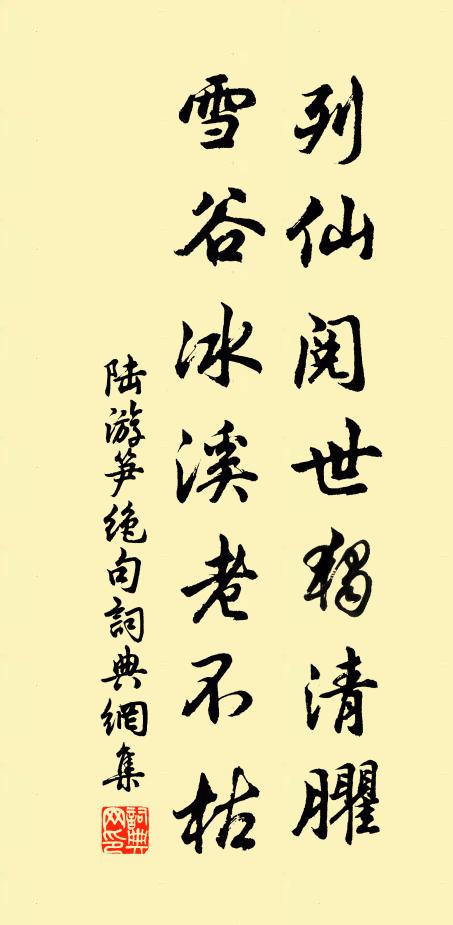 列仙閱世獨清臞
雪谷冰溪老不枯
陆游笋绝句詞典網集
詞典
网印